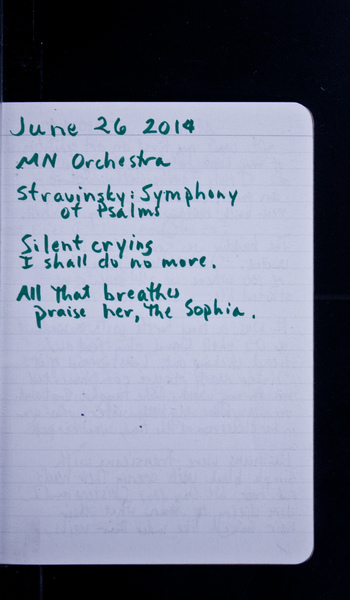 June 26 2014
MN Orchestra
Stravinsky: Symphony
of Psalms
Silent crying
I shall do no more.
All that breathes
praise her, the Sophia.